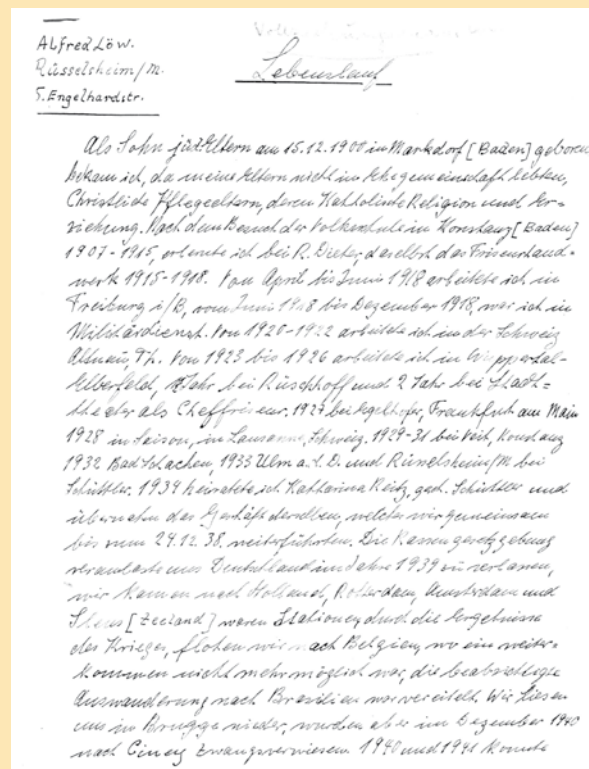 Alfred Löw.
Rüsselsheim/M.
5. Engelhardstr.
Lebenslauf
Als Sohn jüd. Eltern am 15.12.1900 in Markdorf [Baden] geboren
bekam ich, da meine Eltern nicht in Ehegemeinschaft lebten,
Christliche Pflegeeltern, deren Katholische Religion und Er-
ziehung. Nach dem Besuch der Volkschule in Konstanz [Baden]
1907-1915, erlernte ich bei R. Dieter, daselbst das Friseurhand-
werk 1915-1918. Von April bis Juni 1918 arbeitete ich in
Freiburg i/B, vom Juni 1918 bis Dezember 1918, war ich im
Militärdienst. Von 1920-1922 arbeitete ich in der Schweiz
Altnau, Th. Von 1923 bis 1926 arbeitete ich in Wuppertal-
Elberfeld, 1 Jahr bei Rüschhoff und 2 Jahr bei Stadt-
theater als Cheffriseur. 1927 bei Egelhofer, Frankfurt am Main
1928 in Saison, in Lausanne, Schweiz. 1929-31 bei Veit, Konstanz
1932 Bad Schachen, 1933 Ulm a. d. D. und Rüsselsheim/M bei
Schüttler. 1934 heiratete ich Katharina Reitz, geb. Schüttler und
übernahm das Geschäft derselben, welches wir gemeinsam
bis zum 24.12.38. weiterführten. Die Rassengesetzgebung
veranlasste uns Deutschland im Jahre 1939 zu verlassen,
wir kamen nach Holland, Rotterdam, Amsterdam und
Sluis [Zeeland] waren Stationen, durch die Ergebnisse
des Krieges, flohen wir nach Belgien, wo ein weiter-
kommen nicht mehr möglich war, die beabsichtigte
Auswanderung nach Brasilien war vereitelt. Wir liesen
uns in Brugge nieder, wurden aber im Dezember 1940
nach Ciney zwangsverwiesen. 1940 und 1941 konnte